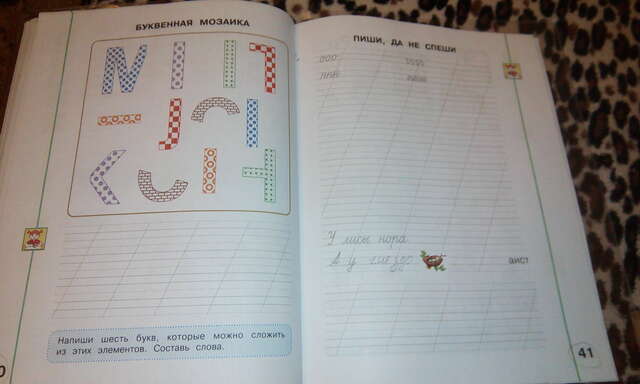 БУКВЕННАЯ МОЗАИКА
Напиши шесть букв, которые можно сложить
из этих элементов. Составь слова.
ПИШИ, ДА НЕ СПЕШИ
У лисы нора.
А у гнездо
аист
41